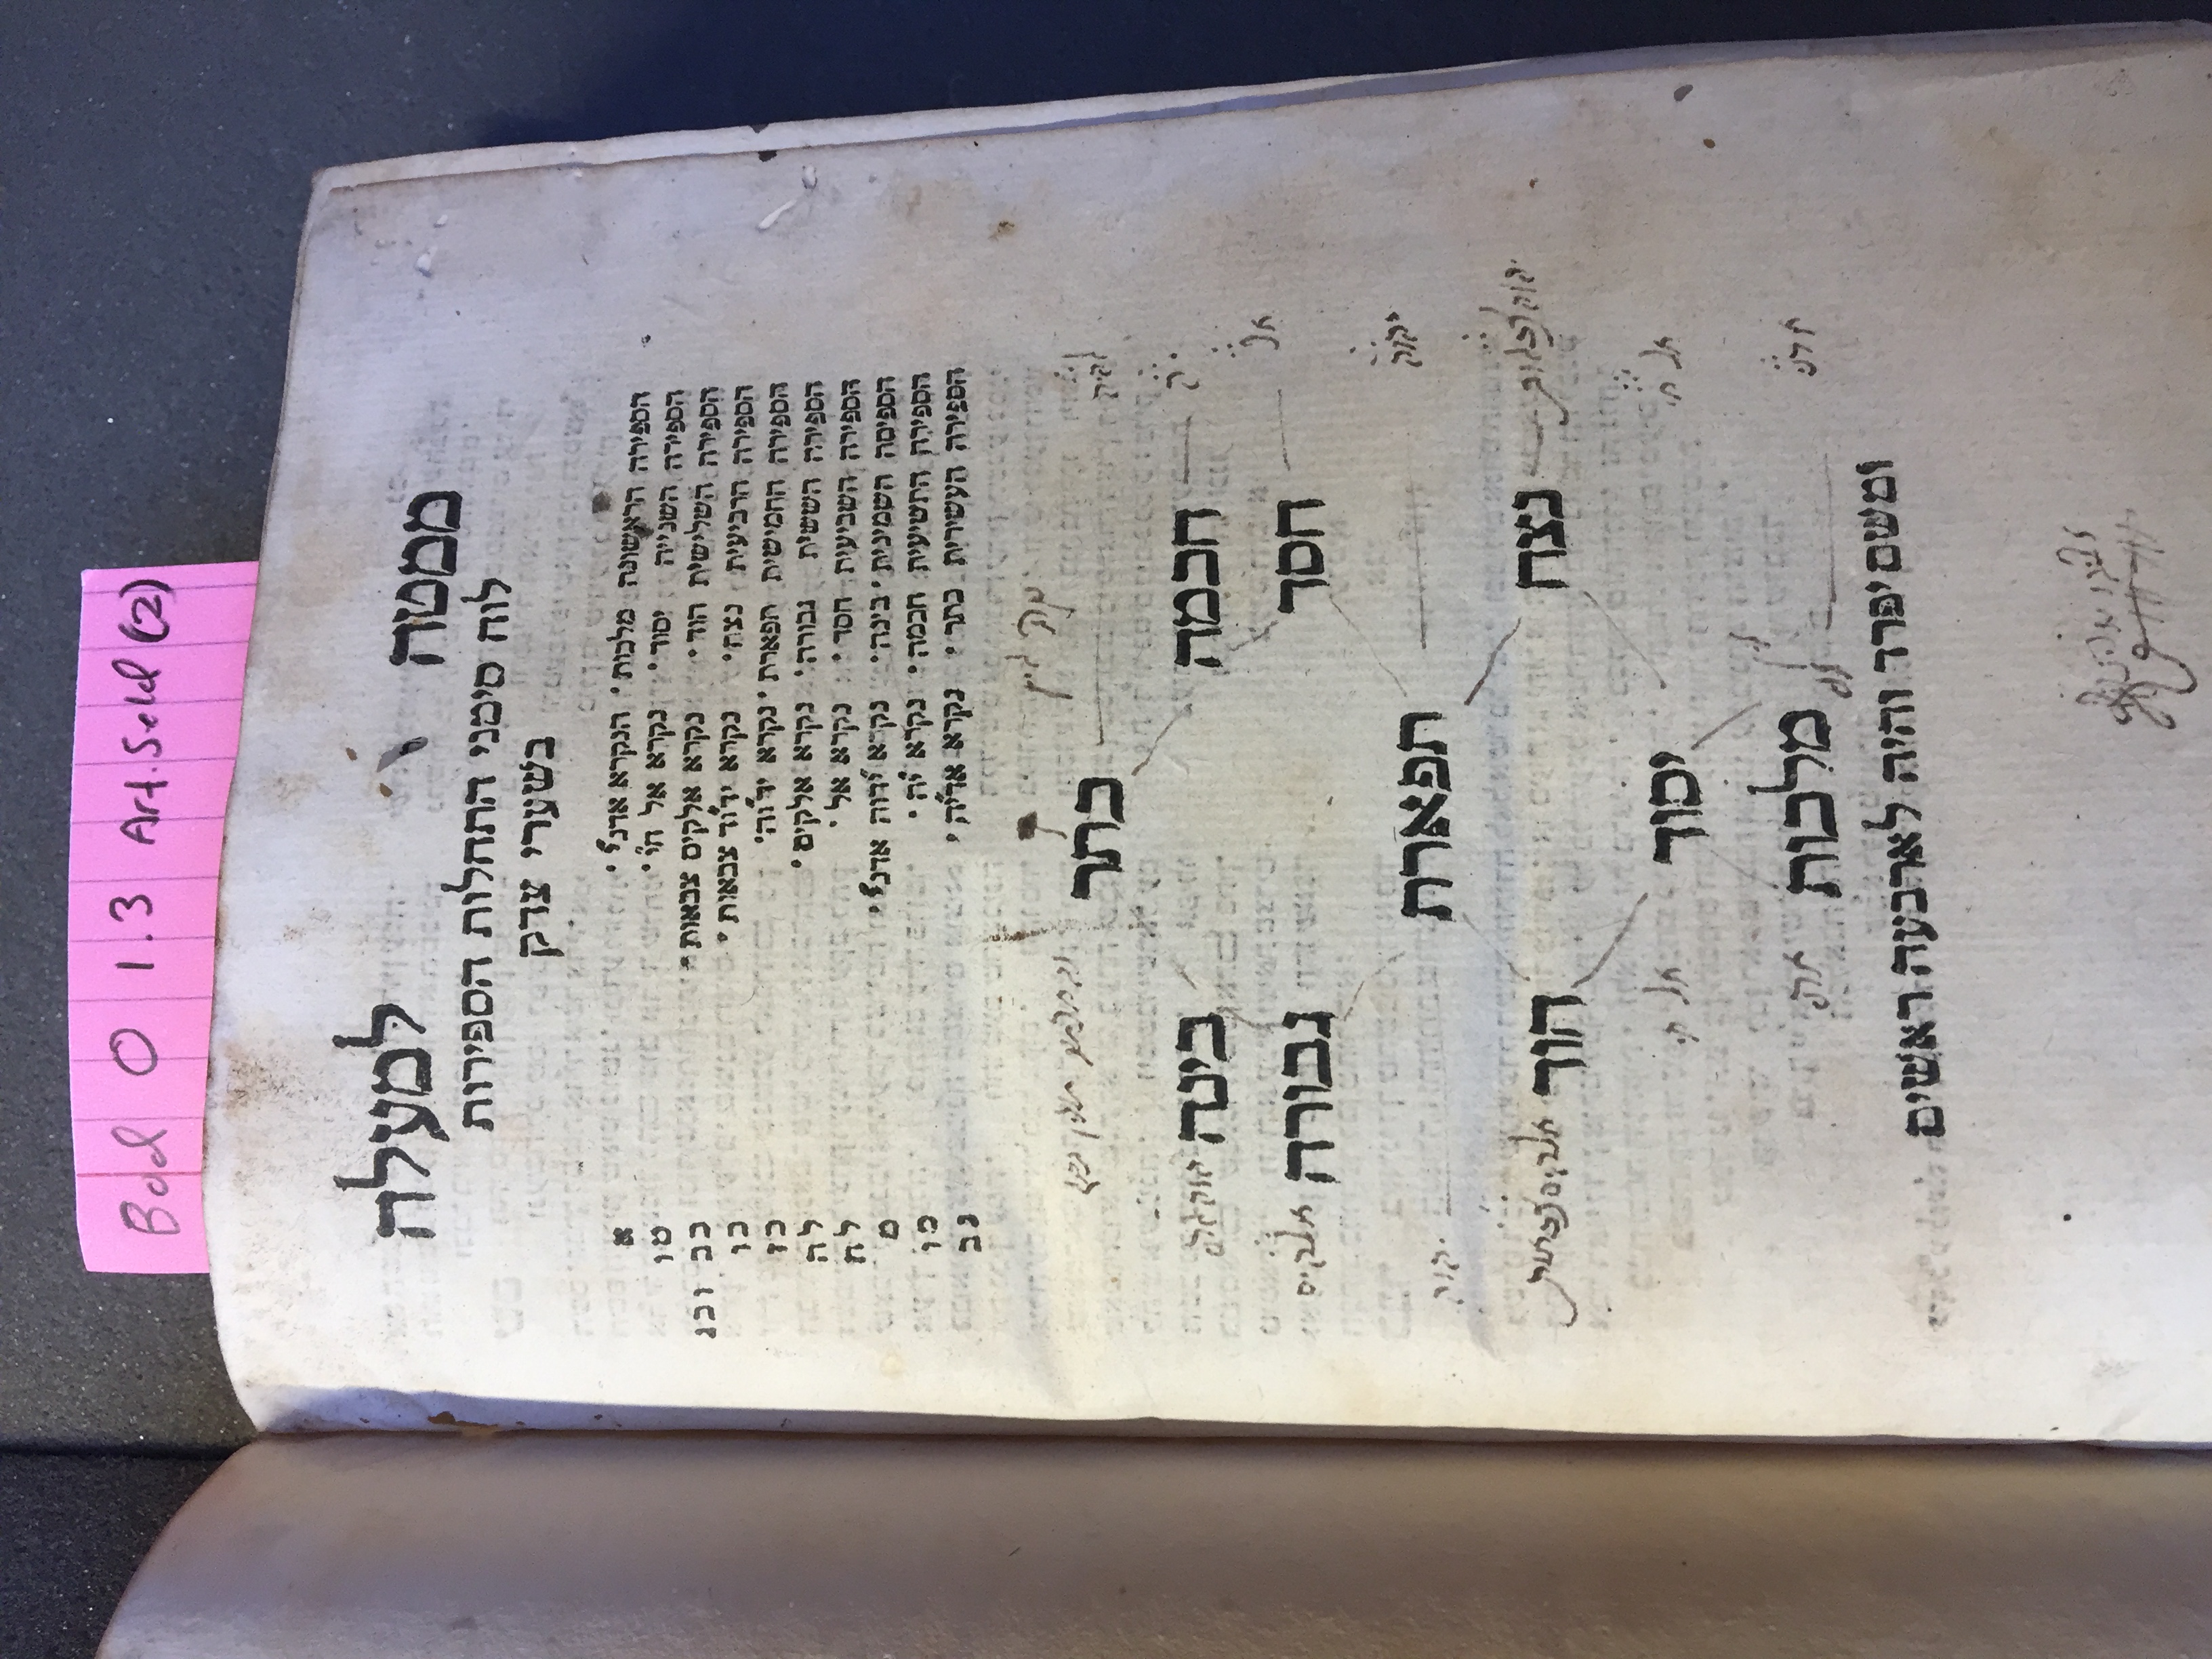 Bod O 1.3 Art.Seld (2)
ממטה למעלה
לוח סימני התחלות הספירות
בשערי צדק
הספירה הראשונה מלכות׳ הנקרא אדנ״י׳ א
הספירה השנייה יסוד׳ נקרא אל ח״י׳ טו
הספירה השלישית הוד׳ נקרא אלקים צבאות׳ כב וכג
הספירה הרביעית נצח׳ נקרא יד׳וד צבאות׳ כו
הספירה החמישית תפארת׳ נקרא יד״וה׳ כז
הספירה הששית גבורה׳ נקרא אלקים׳ לה
הספירה השביעית חסד׳ נקרא אל׳ לח
הספיסה השמינית׳ בינה׳ נקרא ידוה אדנ״י׳ מ
הספירה התשיעית חכמה׳ נקרא י״ה׳ מו
הספירה העשירית כתר׳ נקרא אה״יה׳ נב
כתר
חכמה בינה
אל חסד גבורה אלקים
יקוק תפארת יקוק
נצח הוד
אל חי יסוד אל חי
מלכות
ומשם יפרד והיה לארבעה ראשים